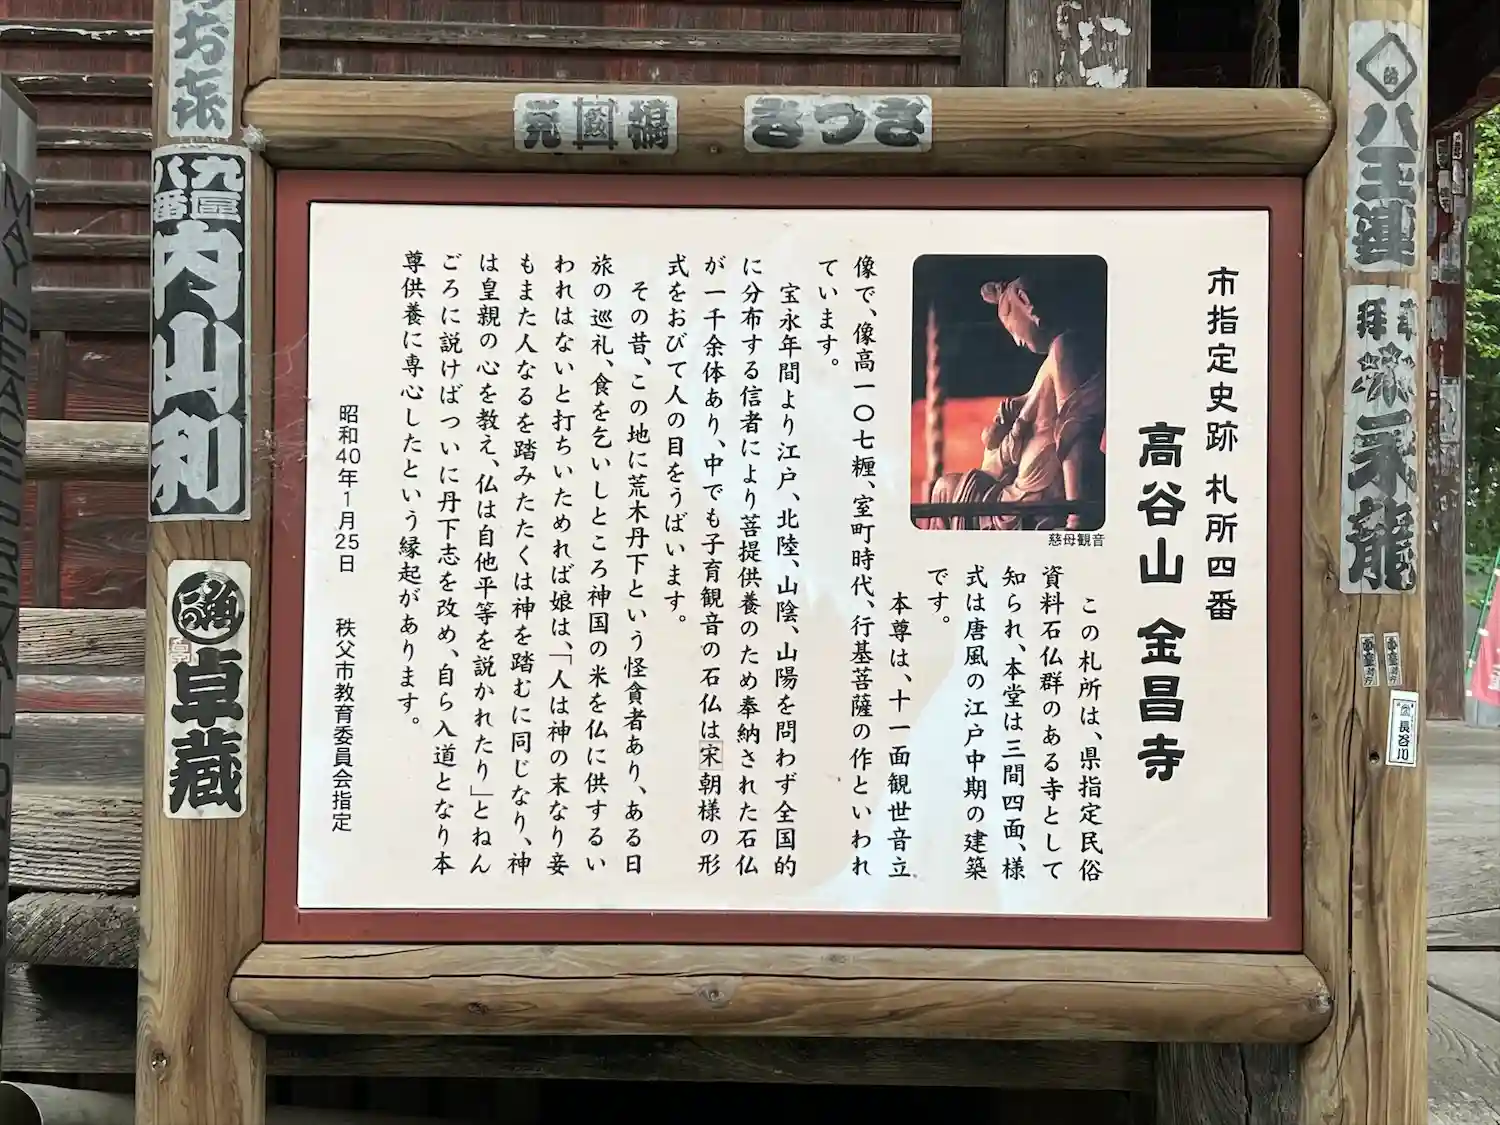 市指定史跡 札所四番
高谷山 金昌寺
この札所は、県指定民俗
資料石仏群のある寺として
知られ、本堂は三間四面、様
式は唐風の江戸中期の建築
です。
本尊は、十一面観世音立
像で、像高一〇七糎、室町時代、行基菩薩の作といわれ
ています。
宝永年間より江戸、北陸、山陰、山陽を問わず全国的
に分布する信者により菩提供養のため奉納された石仏
が一千余体あり、中でも子育観音の石仏は宋朝様の形
式をおびて人の目をうばいます。
その昔、この地に荒木丹下という怪貪者あり、ある日
旅の巡礼、食を乞いしところ神国の米を仏に供するい
われはないと打ちいためれば娘は、「人は神の末なり妾
もまた人なるを踏みたたくは神を踏むに同じなり、神
は皇親の心を教え、仏は自他平等を説かれたり」とねん
ごろに説けばついに丹下志を改め、自ら入道となり本
尊供養に専心したという縁起があります。
昭和40年1月25日 秩父市教育委員会指定
慈母観音
きつぎ
八王連
永龍
長谷川
九区
八番
内山利
卓蔵
MAY PEACE PREVAIL ON